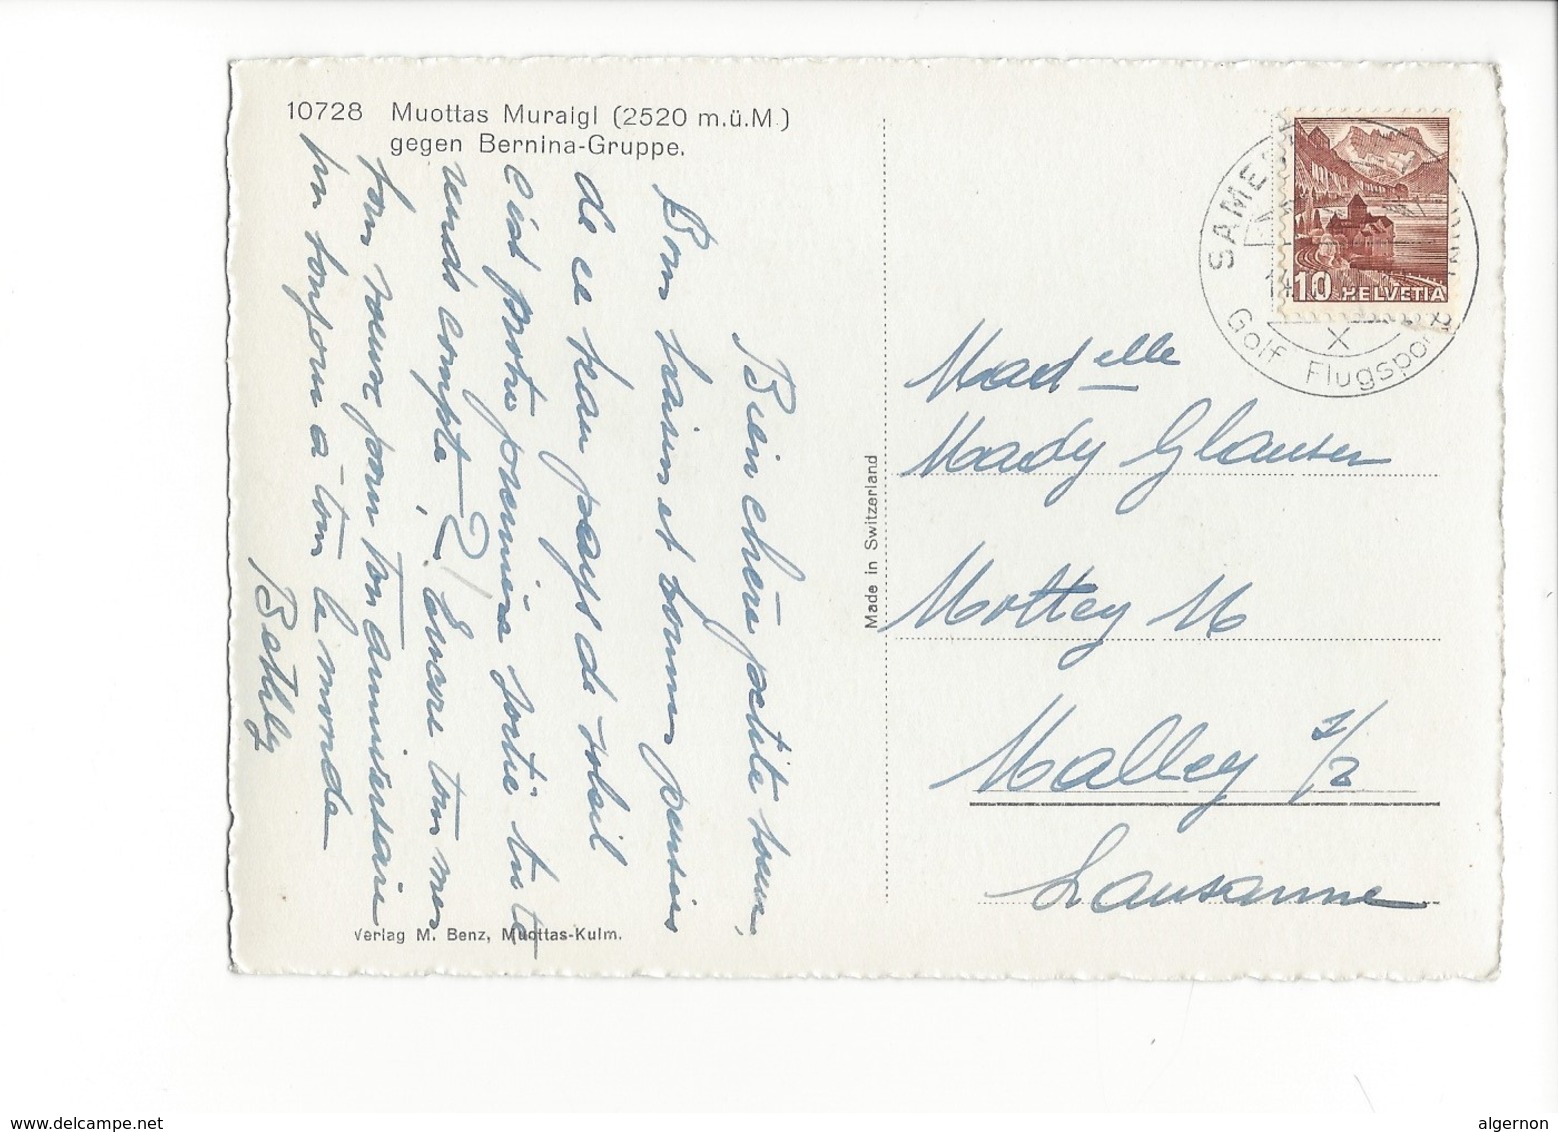 10728 Muottas Muraigl (2520 m.ü.M.)
gegen Bernina-Gruppe.
Bien chère petite sœur,
Bons baisers et bonnes pensées
de ce beau pays de soleil
c'est notre première sortie tu te
rends compte? Encore tous mes
bons vœux pour ton anniversaire
un bonjour à tous le monde
Bethly
Verlag M. Benz, Muottas-Kulm.
Made in Switzerland
SAME
Golf Flugsport
10 HELVETIA
Madelle
Mady Glauser
Mottey
Malley s/
Lausanne
www.delcampe.net
algernon